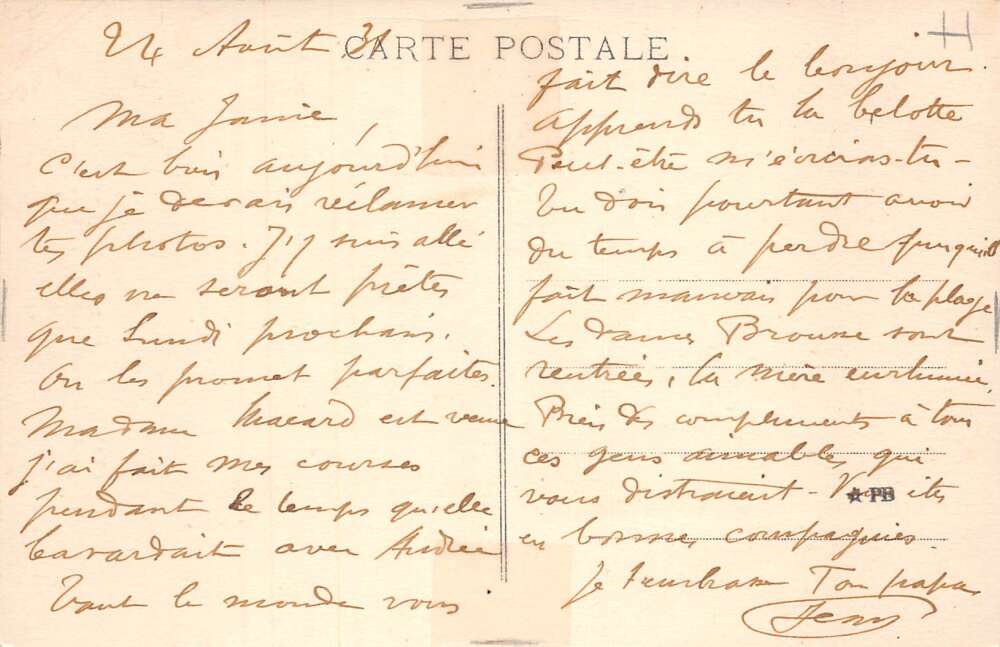 24 Août 31
CARTE POSTALE
H
Ma Janie,
C'est bien aujourd'hui
que je devais réclamer
tes photos. J'y suis allé
elles ne seront prêtes
que Lundi prochain.
On les promet parfaites.
Madame Macard est venue
j'ai fait mes courses
pendant le temps qu'elle
bavardait avec Andrée
Tout le monde vous
fait dire le bonjour.
Apprends tu la belotte
Peut-être m'écriras-tu -
tu dois pourtant avoir
du temps à perdre puisqu'il
fait mauvais pour la plage
Les dames Brousse sont
rentrées, la mère enrhumée.
Bien des compliments à tous
ces gens aimables qui
vous distraient - Vous êtes
☆ PB
en bonnes compagnies.
Je t'embrasse Ton papa
Jean